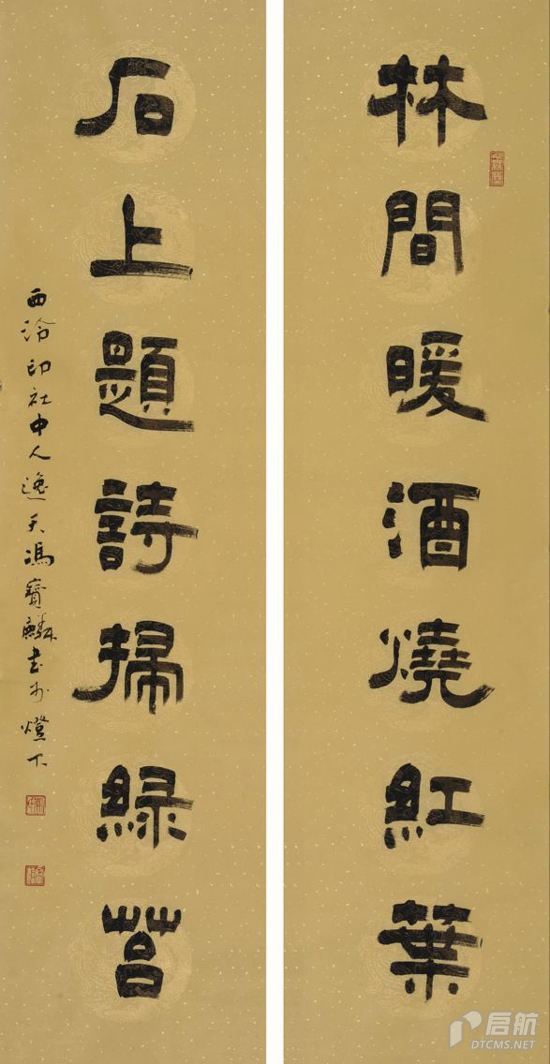 林間暖酒燒紅葉
石上題詩掃緑苔
西泠印社中人逸天馮寶麟書於燈下
启航
DTCMS.NET